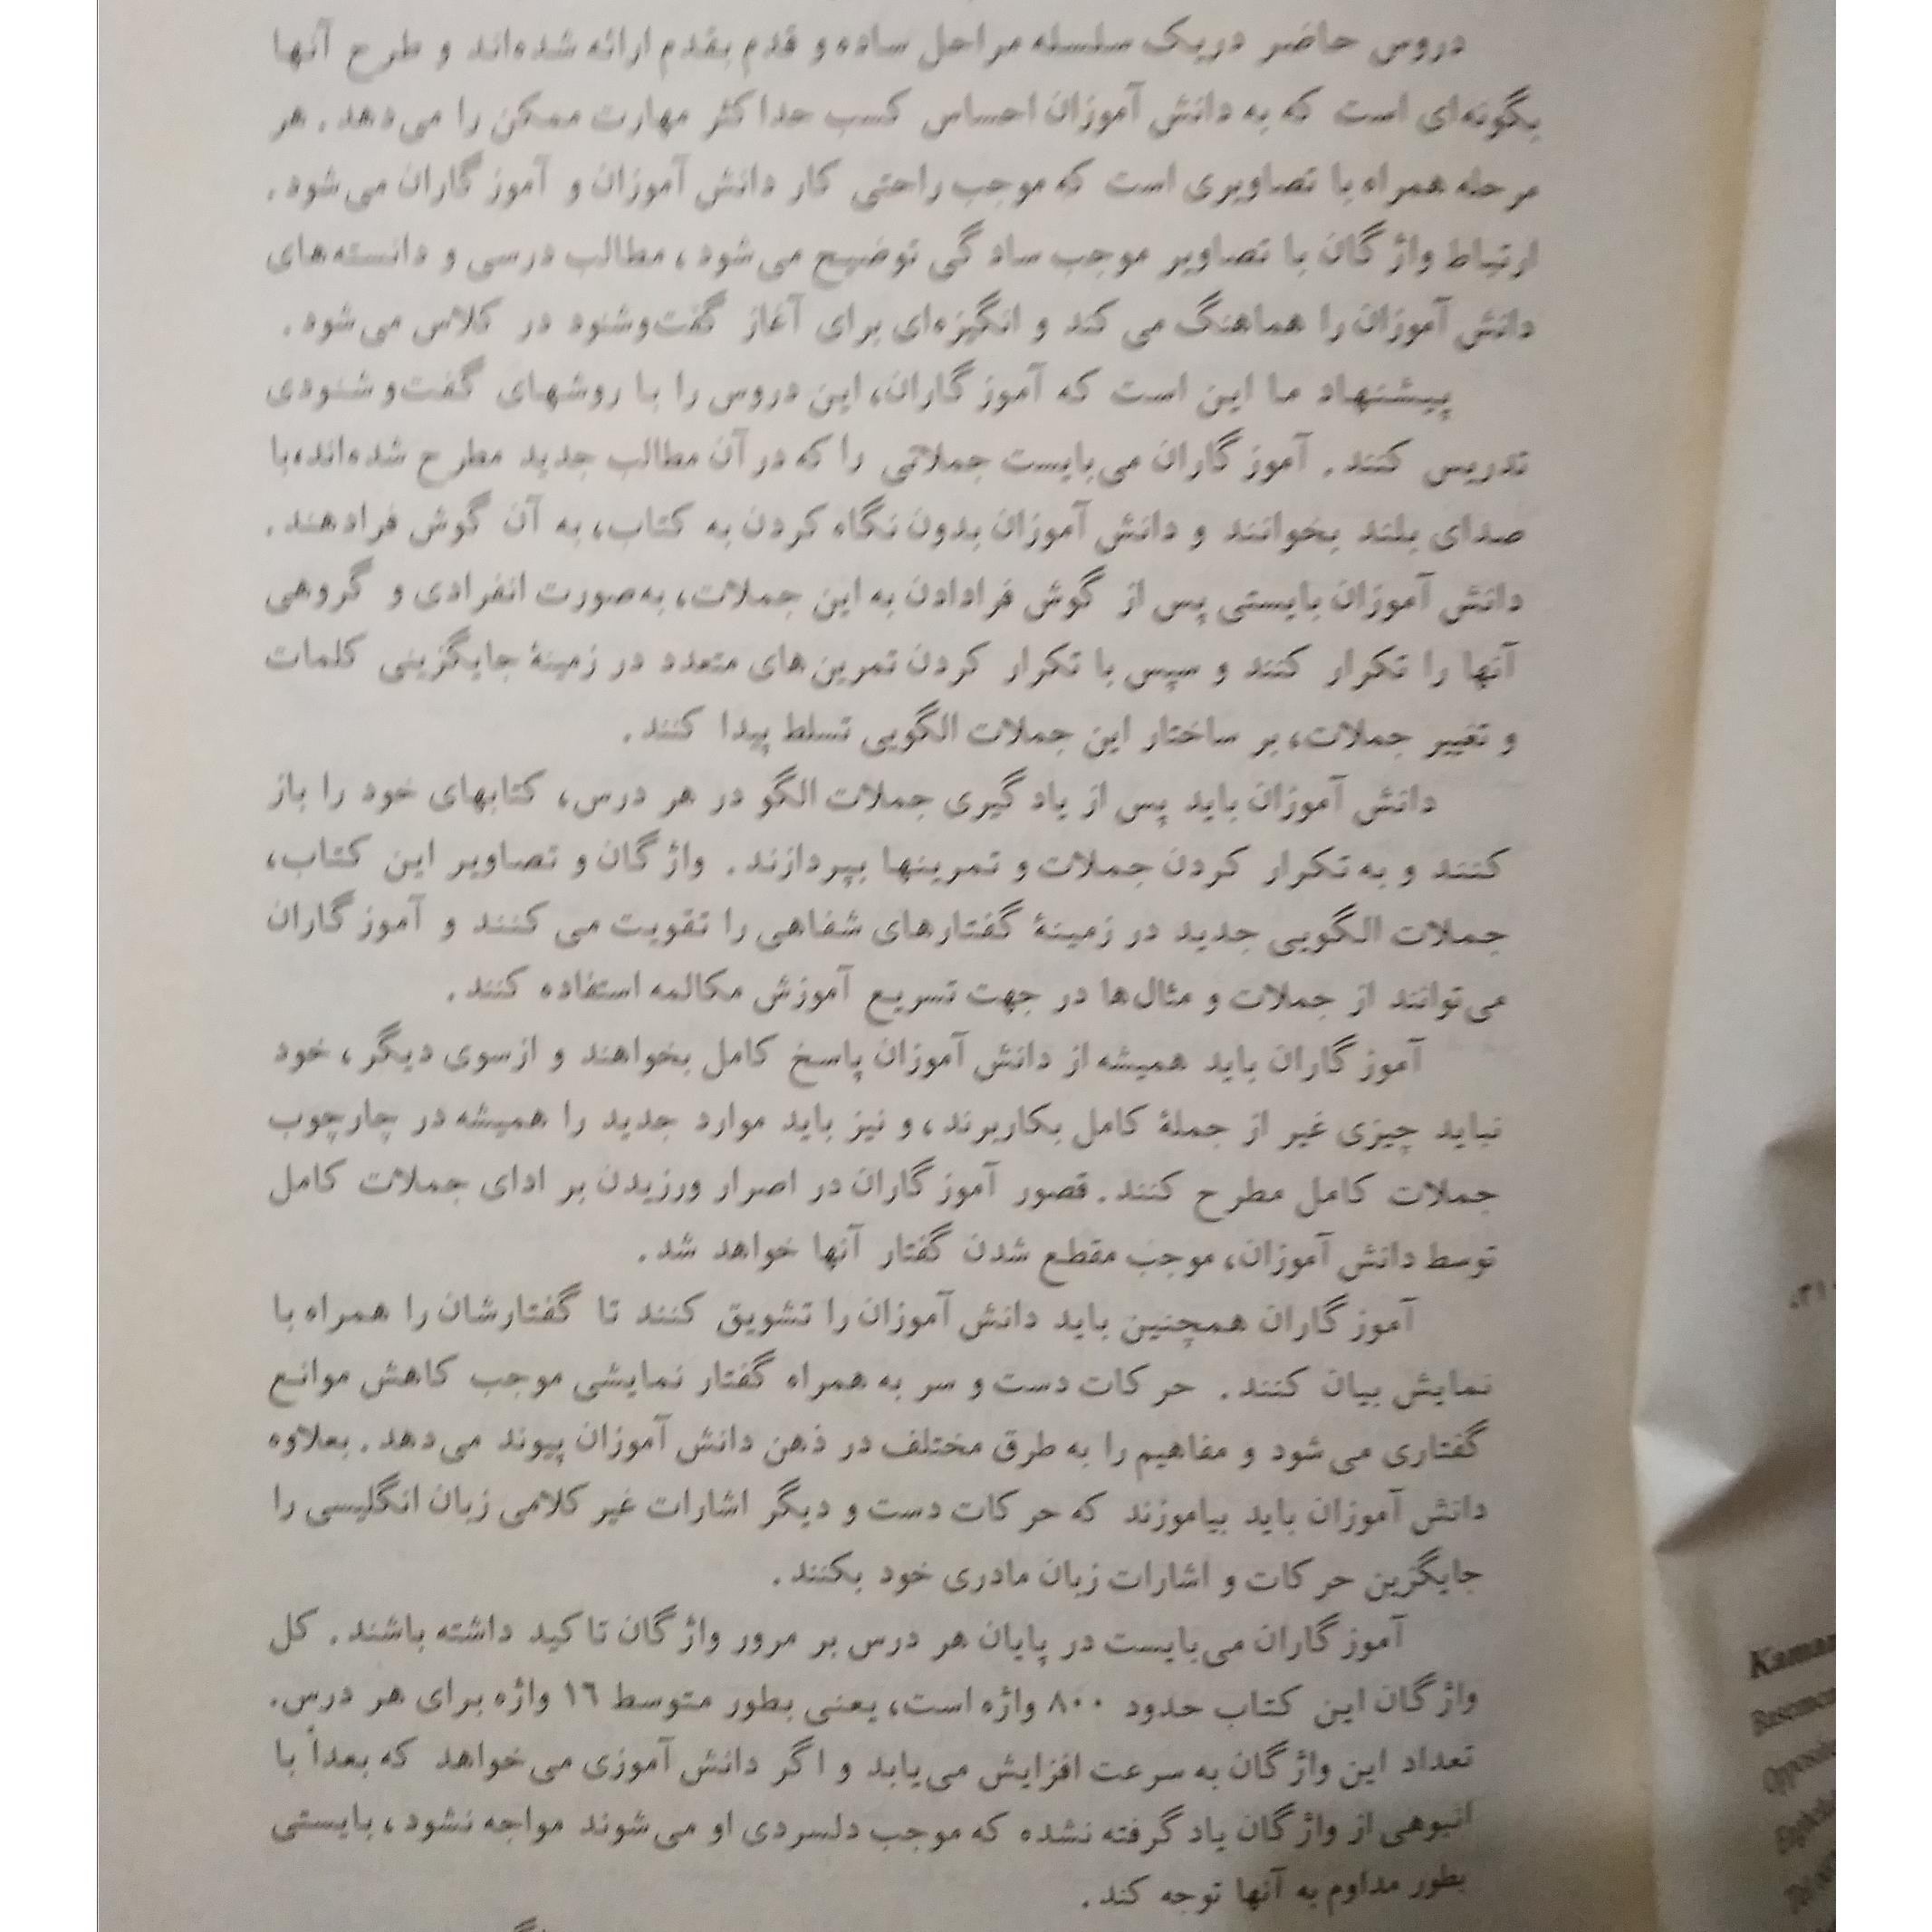 دروس حاضر در یک سلسله مراحل ساده و قدم بقدم ارائه شده‌اند و طرح آنها
بگونه‌ای است که به دانش آموزان احساس کسب حداکثر مهارت ممکن را می‌دهد. هر
مرحله همراه با تصاویری است که موجب راحتی کار دانش آموزان و آموزگاران می‌شود.
ارتباط واژگان با تصاویر موجب سادگی توضیح می‌شود، مطالب درسی و دانسته‌های
دانش آموزان را هماهنگ می‌کند و انگیزه‌ای برای آغاز گفت‌وشنود در کلاس می‌شود.
پیشنهاد ما این است که آموزگاران، این دروس را با روشهای گفت‌وشنودی
تدریس کنند. آموزگاران می‌بایست جملاتی را که در آن مطالب جدید مطرح شده‌اند، با
صدای بلند بخوانند و دانش آموزان بدون نگاه کردن به کتاب، به آن گوش فرادهند.
دانش آموزان بایستی پس از گوش فرادادن به این جملات، به‌صورت انفرادی و گروهی
آنها را تکرار کنند و سپس با تکرار کردن تمرین‌های متعدد در زمینهٔ جایگزینی کلمات
و تغییر جملات، بر ساختار این جملات الگویی تسلط پیدا کنند.
دانش آموزان باید پس از یادگیری جملات الگو در هر درس، کتابهای خود را باز
کنند و به تکرار کردن جملات و تمرینها بپردازند. واژگان و تصاویر این کتاب،
جملات الگویی جدید در زمینهٔ گفتارهای شفاهی را تقویت می‌کنند و آموزگاران
می‌توانند از جملات و مثال‌ها در جهت تسریع آموزش مکالمه استفاده کنند.
آموزگاران باید همیشه از دانش آموزان پاسخ کامل بخواهند و ازسوی دیگر، خود
نباید چیزی غیر از جملهٔ کامل بکاربرند، و نیز باید موارد جدید را همیشه در چارچوب
جملات کامل مطرح کنند. قصور آموزگاران در اصرار ورزیدن بر ادای جملات کامل
توسط دانش آموزان، موجب مقطع شدن گفتار آنها خواهد شد.
آموزگاران همچنین باید دانش آموزان را تشویق کنند تا گفتارشان را همراه با
نمایش بیان کنند. حرکات دست و سر به همراه گفتار نمایشی موجب کاهش موانع
گفتاری می‌شود و مفاهیم را به طرق مختلف در ذهن دانش آموزان پیوند می‌دهد. بعلاوه
دانش آموزان باید بیاموزند که حرکات دست و دیگر اشارات غیر کلامی زبان انگلیسی را
جایگزین حرکات و اشارات زبان مادری خود بکنند.
آموزگاران می‌بایست در پایان هر درس بر مرور واژگان تاکید داشته باشند. کل
واژگان این کتاب حدود ۸۰۰ واژه است، یعنی بطور متوسط ۱۶ واژه برای هر درس.
تعداد این واژگان به سرعت افزایش می‌یابد و اگر دانش آموزی می‌خواهد که بعداً با
انبوهی از واژگان یاد گرفته نشده که موجب دلسردی او می‌شوند مواجه نشود، بایستی
بطور مداوم به آنها توجه کند.